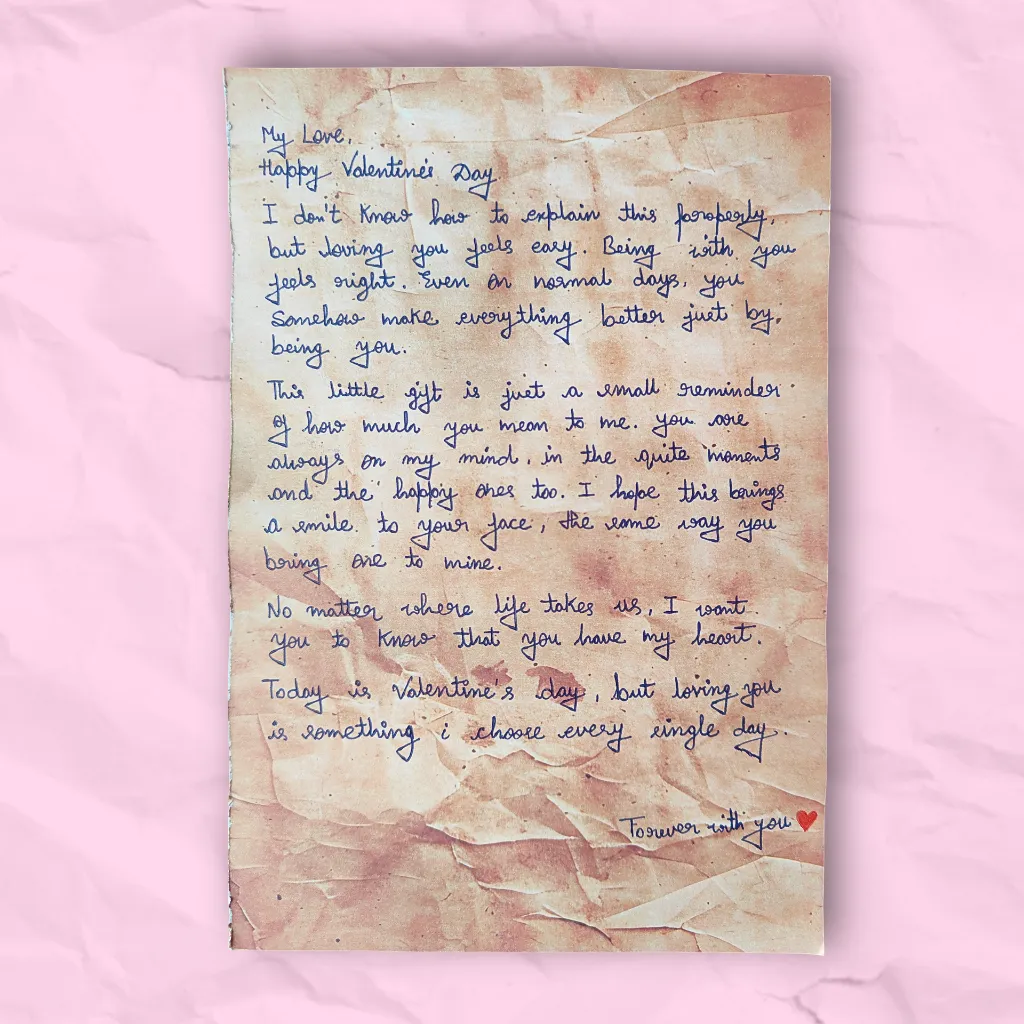 My Love,
Happy Valentine's Day
I don't know how to explain this properly,
but loving you feels easy. Being with you
feels right. Even on normal days, you
Somehow make everything better just by,
being you.
This little gift is just a small reminder.
Of how much you mean to me. you are
always on my mind, in the quite moments
and the happy ones too. I hope this brings
a smile. to your face, the same way you
bring one to mine.
No matter where life takes us, I want
you to know that you have my heart.
Today is Valentine's day, but loving you
is something i choose every single day.
Forever with you